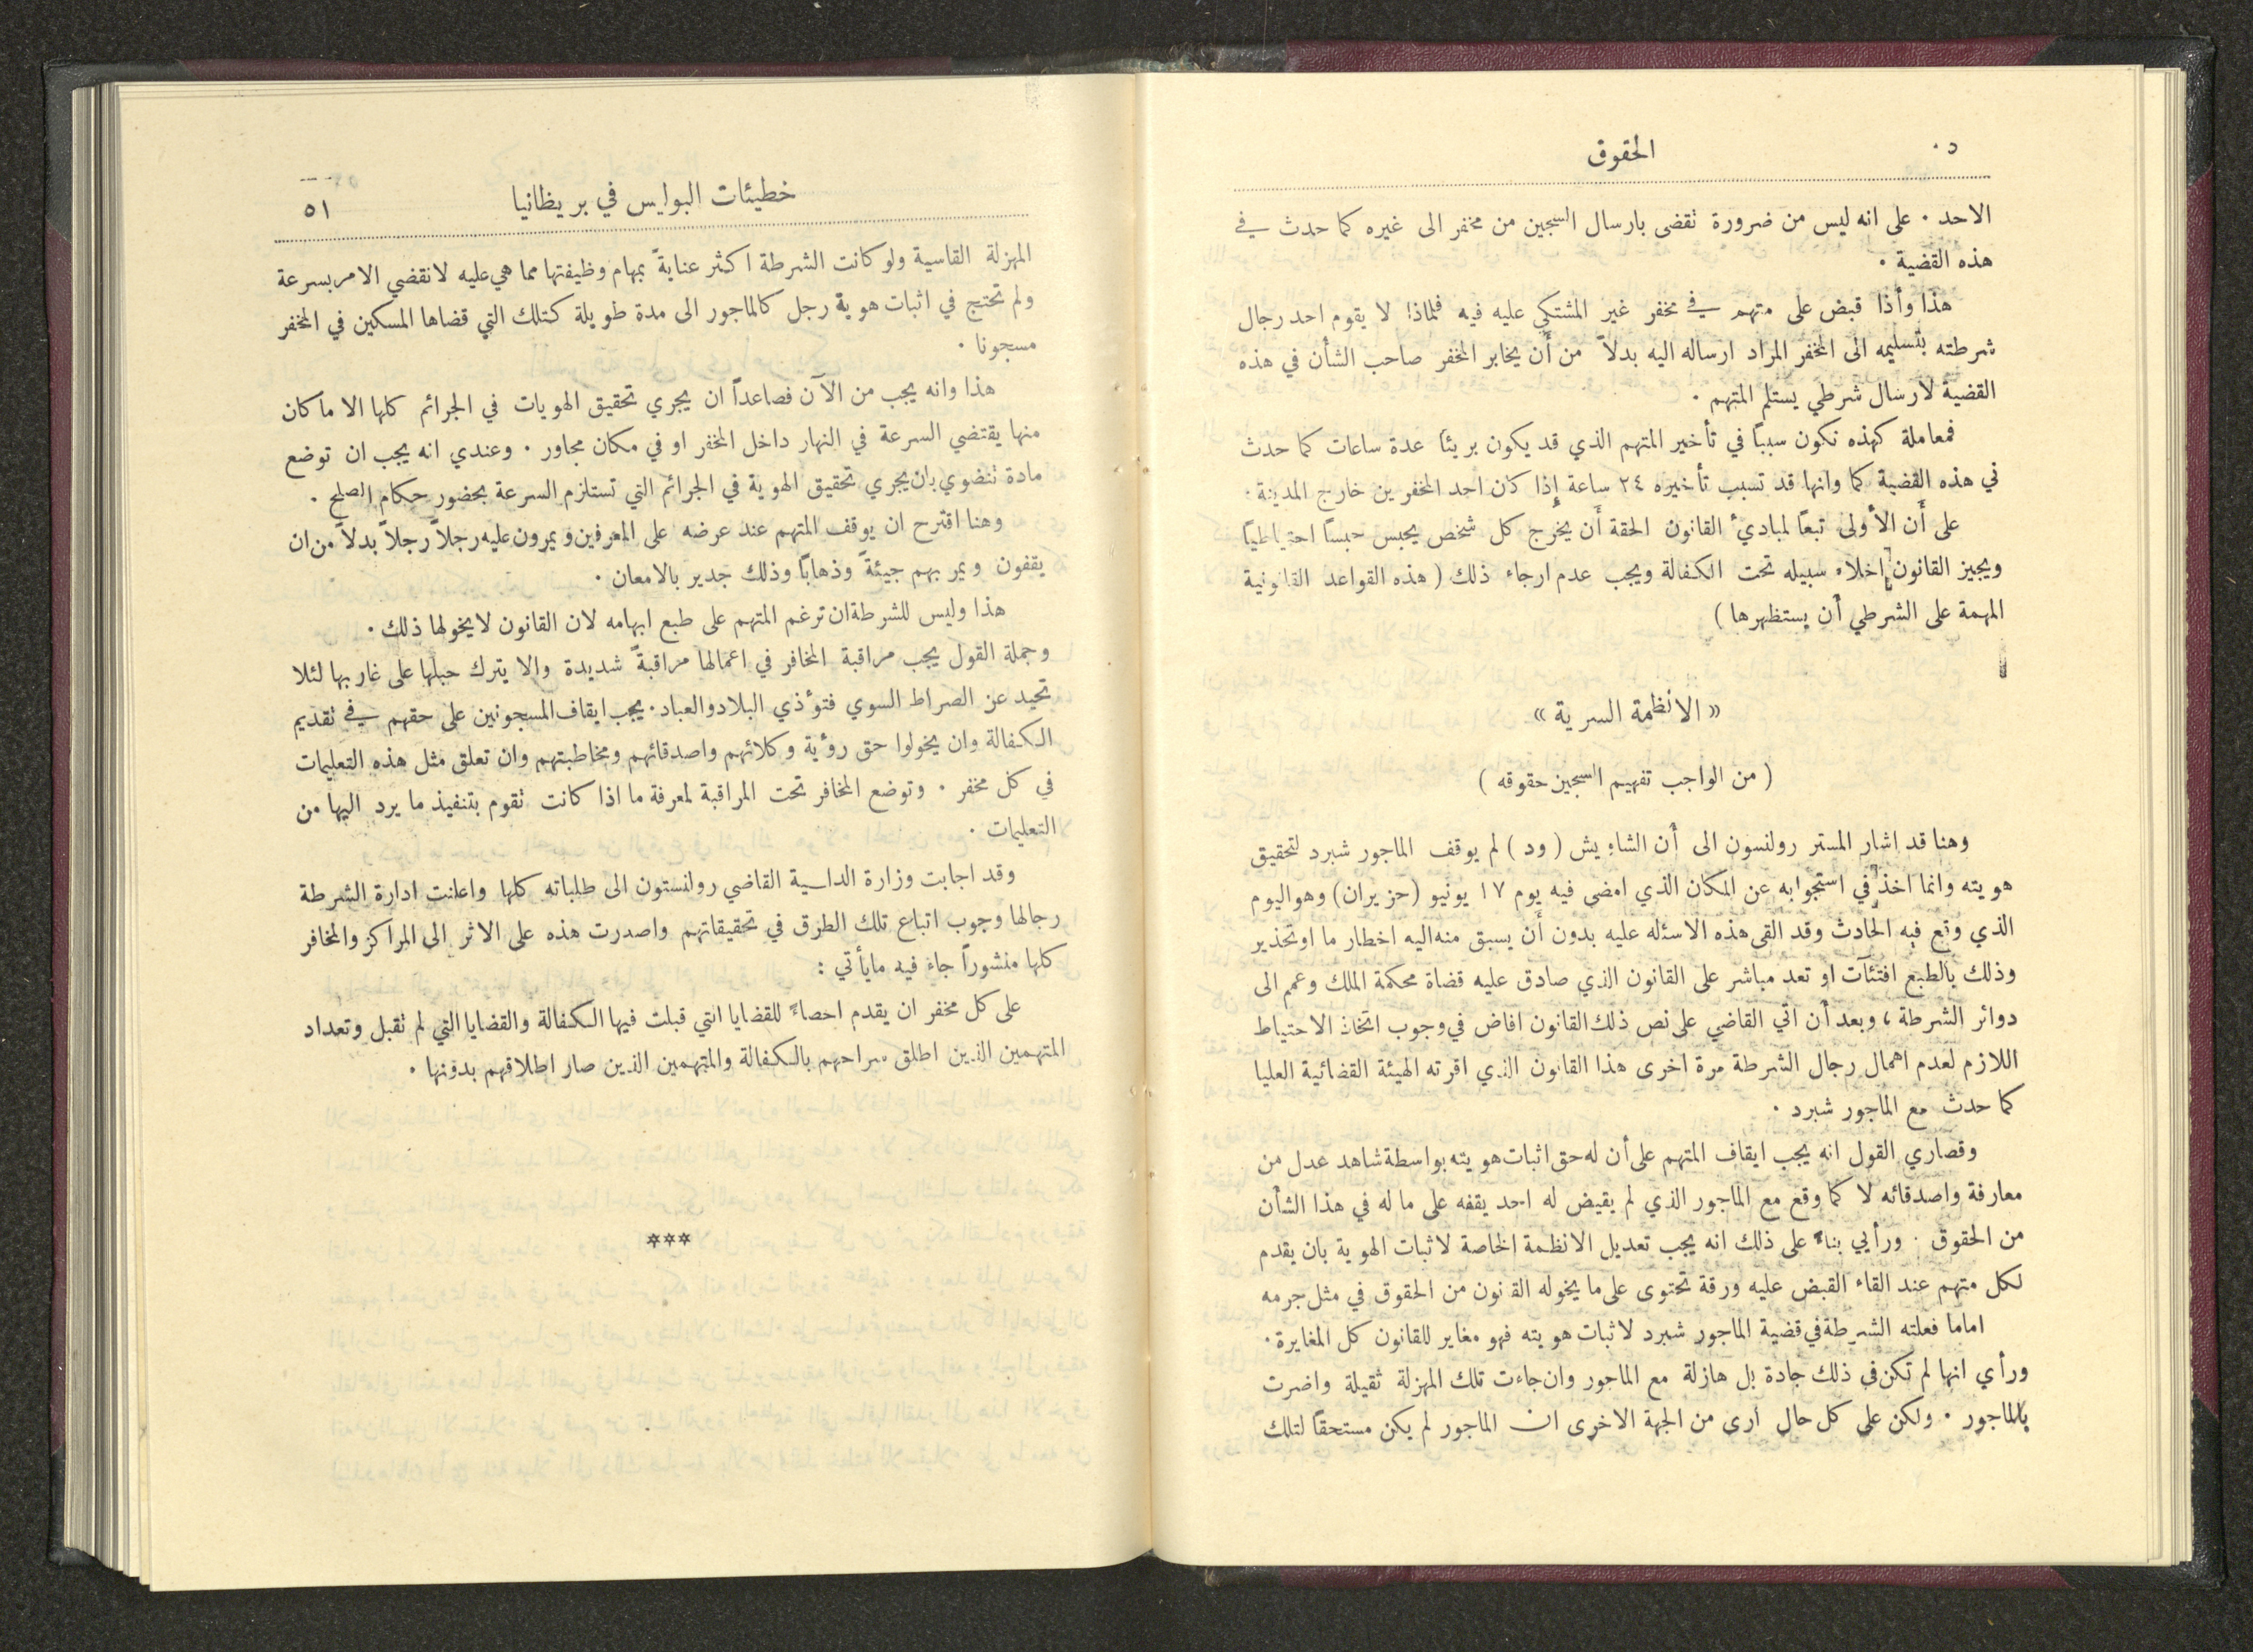 ٥٠
الحقوق
الاحد · على انه ليس من ضرورة تقضى بارسال السجين من مخفر الى غيره كما حدث في
هذه القضية ·
هذا وأذا قبض على متهم في مخفر غير المشتكي عليه فيه فلماذا لا يقوم احد رجال
شرطته بتسليمه الى المخفر المراد ارساله اليه بدلاً من أن يخابر المخفر صاحب الشأن في هذه
القضية لارسال شرطي يستلم المتهم ·
فمعاملة كهذه تكون سبباً في تأخير المتهم الذي قد يكون بريئاً عدة ساعات كما حدث
في هذه القضية كما وانها قد تسبب تأخيره ٢٤ ساعة إذا كان احد المخفرين خارج المدينة ·
على أن الأولى تبعاً لمباديء القانون الحقة أن يخرج كل شخص يحبس حبساً احتياطياً
ويجيز القانون اخلاء سبيله تحت الكفالة ويجب عدم ارجاء ذلك ( هذه القواعد القانونية
المهمة على الشرطي أن يستظهرها )
« الانظمة السرية »
( من الواجب تفهيم السجين حقوقه )
وهنا قد اشار المستر رولنسون الى أن الشاويش ( ود ) لم يوقف الماجور شبرد لتحقيق
هويته وانما اخذ في استجوابه عن المكان الذي امضى فيه يوم ١٧ يونيو (حزيران) وهو اليوم
الذي وقع فيه الحادث وقد القى هذه الاسئله عليه بدون أن يسبق منه اليه اخطار ما او تحذير
وذلك بالطبع افتئآت او تعد مباشر على القانون الذي صادق عليه قضاة محكمة الملك وعمم الى
دوائر الشرطة ، وبعد أن اتي القاضي على نص ذلك القانون افاض في وجوب اتخاذ الاحتياط
اللازم لعدم اهمال رجال الشرطة مرة اخرى هذا القانون الذي اقرته الهيئة القضائية العليا
كما حدث مع الماجور شبرد ·
وقصاري القول انه يجب ايقاف المتهم على أن له حق اثبات هويته بواسطة شاهد عدل من
معارفة واصدقائه لا كما وقع مع الماجور الذي لم يقيض له احد يقفه على ما له في هذا الشأن
من الحقوق · ورأيي بناء على ذلك انه يجب تعديل الانظمة الخاصة لاثبات الهوية بان يقدم
لكل متهم عند القاء القبض عليه ورقة تحتوى على ما يخوله القانون من الحقوق في مثل جرمه
اماما فعلته الشرطة في قضية الماجور شبرد لاثبات هويته فهو مغاير للقانون كل المغايرة ·
ورأي انها لم تكن في ذلك جادة بل هازلة مع الماجور وان جاءت تلك المهزلة ثقيلة واضرت
بالماجور · ولكن على كل حال أرى من الجهة الاخرى ان الماجور لم يكن مستحقاً لتلك
خطيئات البوليس في بريطانيا
٥١
المهزلة القاسية ولو كانت الشرطة اكثر عنايةً بمهام وظيفتها مما هي عليه لانقضي الامر بسرعة
ولم تحتج في اثبات هوية رجل كالماجور الى مدة طويلة كتلك التي قضاها المسكين في المخفر
مسجونا ·
هذا وانه يجب من الآن فصاعداً ان يجري تحقيق الهويات في الجرائم كلها الا ما كان
منها يقتضي السرعة في النهار داخل المخفر او في مكان مجاور · وعندي انه يجب ان توضع
مادة تنضوي بان يجري تحقيق الهوية في الجرائم التي تستلزم السرعة بحضور حكام الصلح ·
وهنا اقترح ان يوقف المتهم عند عرضه على المعرفين ويمرون عليه رجلاً رجلاً بدلاً من ان
يقفون ويمر بهم جيئةً وذهاباً وذلك جدير بالامعان ·
هذا وليس للشرطة ان ترغم المتهم على طبع ابهامه لان القانون لا يخولها ذلك ·
وجملة القول يجب مراقبة المخافر في اعمالها مراقبةً شديدة والا يترك حبلها على غاربها لئلا
تحيد عن الصراط السوي فتؤذي البلاد والعباد · يجب ايقاف المسجونين على حقهم في تقديم
الكفالة وان يخولوا حق رؤية وكلائهم واصدقائهم ومخاطبتهم وان تعلق مثل هذه التعليمات
في كل مخفر · وتوضع المخافر تحت المراقبة لمعرفة ما اذا كانت تقوم بتنفيذ ما يرد اليها من
التعليمات ·
وقد اجابت وزارة الداسية القاضي رولنستون الى طلباته كلها واعلنت ادارة الشرطة
رجالها وجوب اتباع تلك الطرق في تحقيقاتهم واصدرت هذه على الاثر الى المراكز والمخافر
كلها منشوراً جاء فيه مايأتي :
على كل مخفر ان يقدم احصاءً للقضايا التي قبلت فيها الكفالة والقضايا التي لم تقبل وتعداد
المتهمين الذين اطلق سراحهم بالكفالة والمتهمين الذين صار اطلاقهم بدونها ·
***